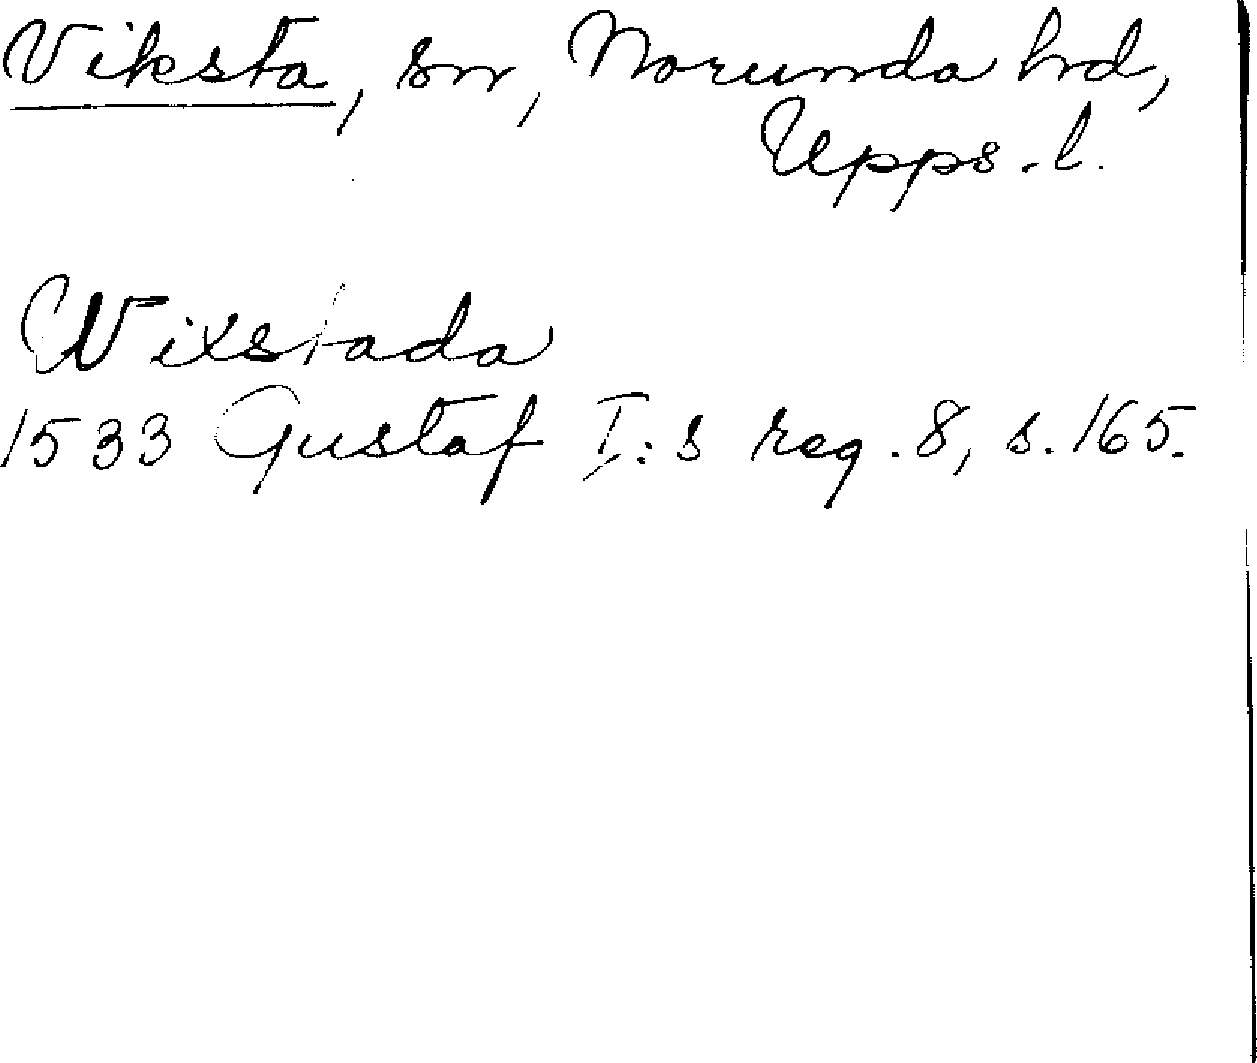 Viksta, sn, Norunda hd,
Upps. l.
Wixstada
1533 Gustaf I:s reg. 8, s. 165.